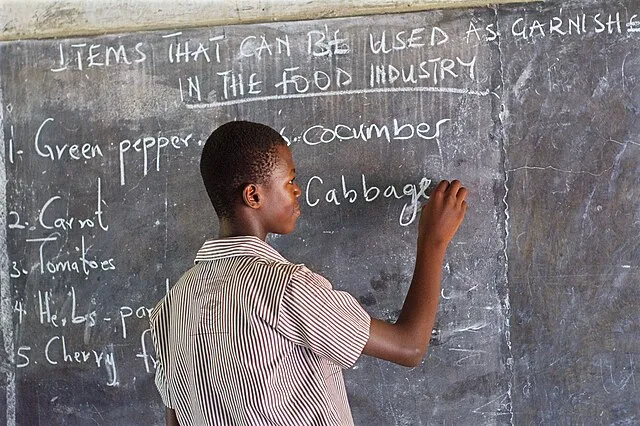 ITEMS THAT CAN BE USED AS GARNISHE
IN THE FOOD INDUSTRY
1. Green pepper.
2. Carrot
3. Tomatoes
4. Herbs - par
5. Cherry f
6. cocumber
Cabbage